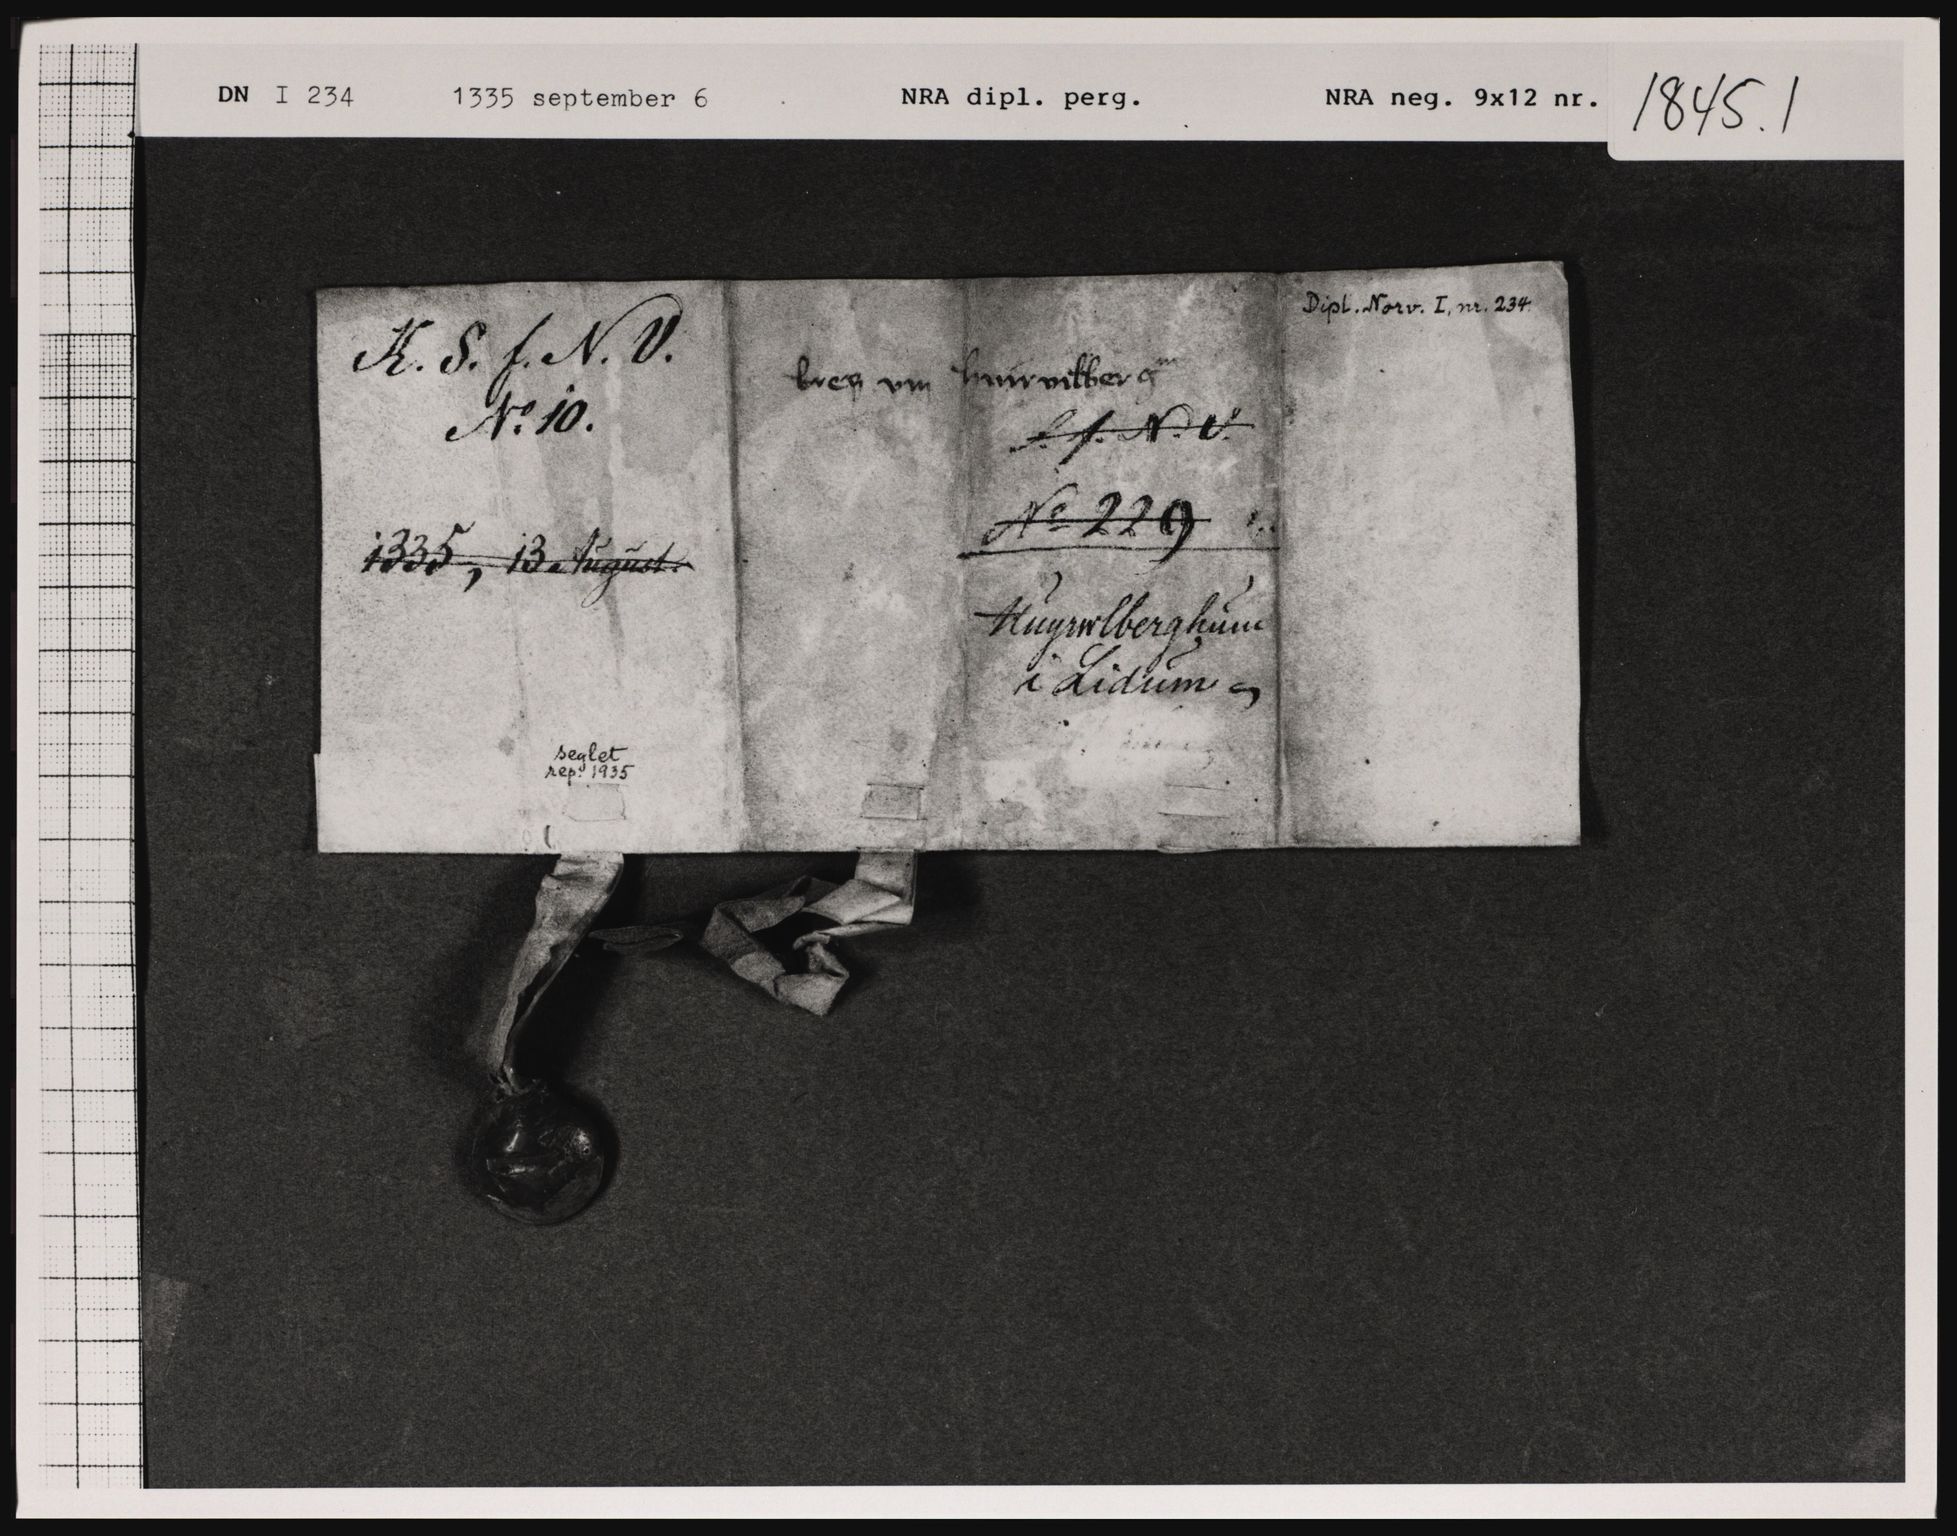 DN I 234 1335 september 6 NRA dipl. perg. NRA neg. 9x12 nr. 1845.1
Dipl. Norv. I, nr. 234.
K. S. f. N. V.
No. 10.
1335, 13 August.
seglet
rep. 1935
breff vm huirvilberg
S. f. N. V.
No 229
Huyrwlberghum
i Lidum